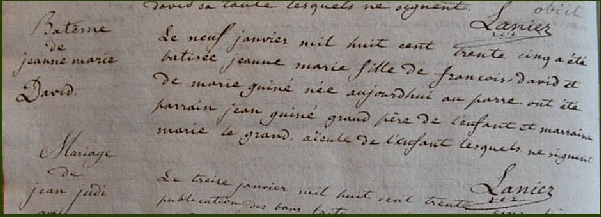 david sa tante lesquels ne signent.
Laniez
Batême
de
jeanne marie
David.
Le neuf janvier mil huit cent trente cinq a été
batisée jeanne marie fille de francois david et
de marie guiné née aujourdhui au parre ont été
parrain jean guiné grand père de l'enfant et marraine
marie le grand. aïeule de l'enfant lesquels ne signent
Laniez
Mariage
de
jean judi
Le treize janvier mil huit cent trente
publication des bans faite